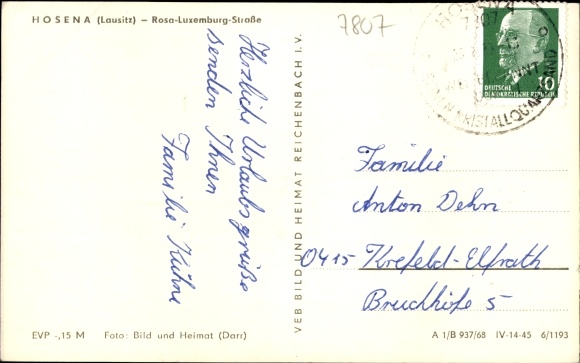 HOSENA (Lausitz) – Rosa-Luxemburg-Straße
7807
Herzliche Urlaubsgrüße
senden Ihnen
Familie Kühne
VEB BILD UND HEIMAT REICHENBACH I.V.
7807
DEUTSCHE
DEMOKRATISCHE REPUBLIK
10
KRISTALLQUARZSAND
Familie
Anton Dehn
0415 Krefeld-Elfrath
Bruchhöfe 5
EVP -,15 M Foto: Bild und Heimat (Darr)
A 1/B 937/68 IV-14-45 6/1193